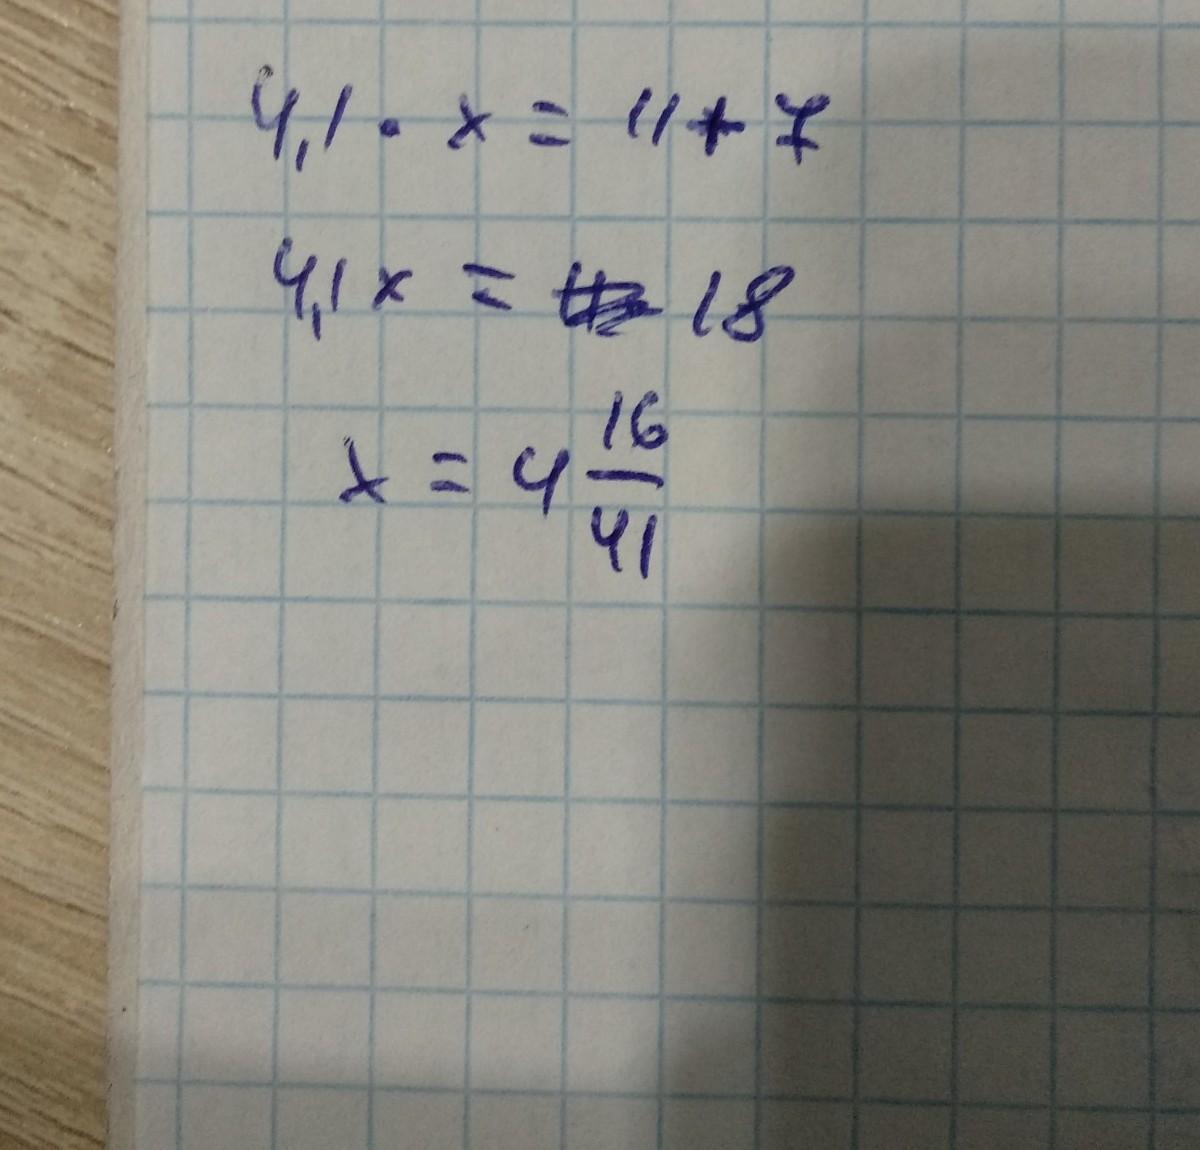 4,1 · x = 11 + 7
4,1 x = 18
x = 4 16/41